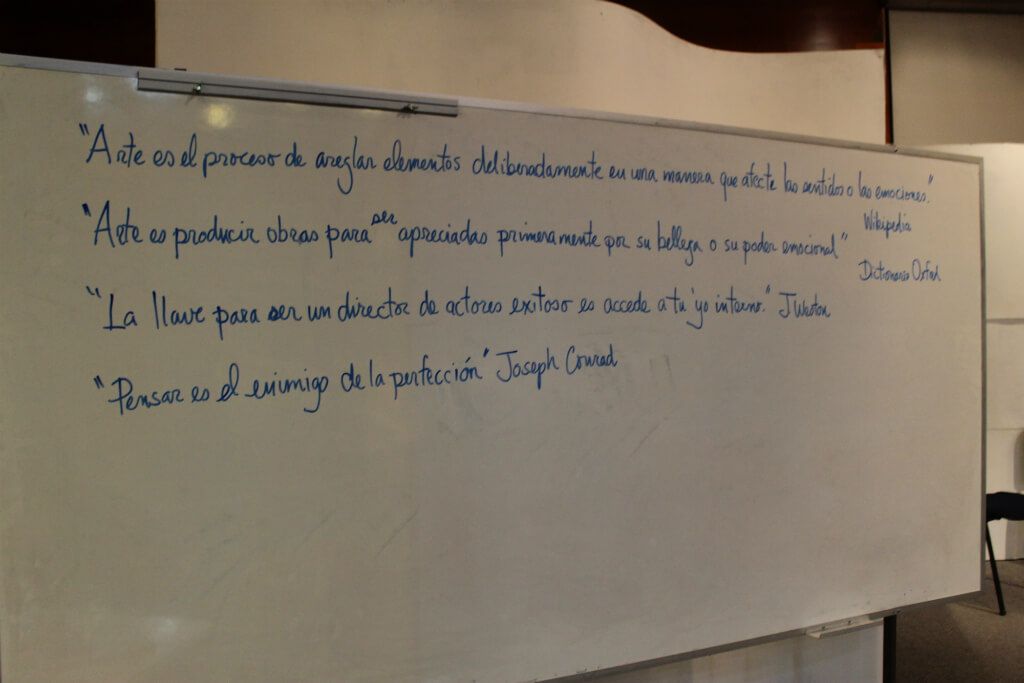 "Arte es el proceso de areglar elementos deliberadamente en una manera que afecte las sentidos o las emociones."
Wikipedia
"Arte es producir obras para ser apreciadas primeramente por su belleza o su poder emocional"
Dictionario Oxford
"La llave para ser un director de actores exitoso es accede a tu 'yo interno." J Weston
"Pensar es el enimigo de la perfección" Joseph Conrad